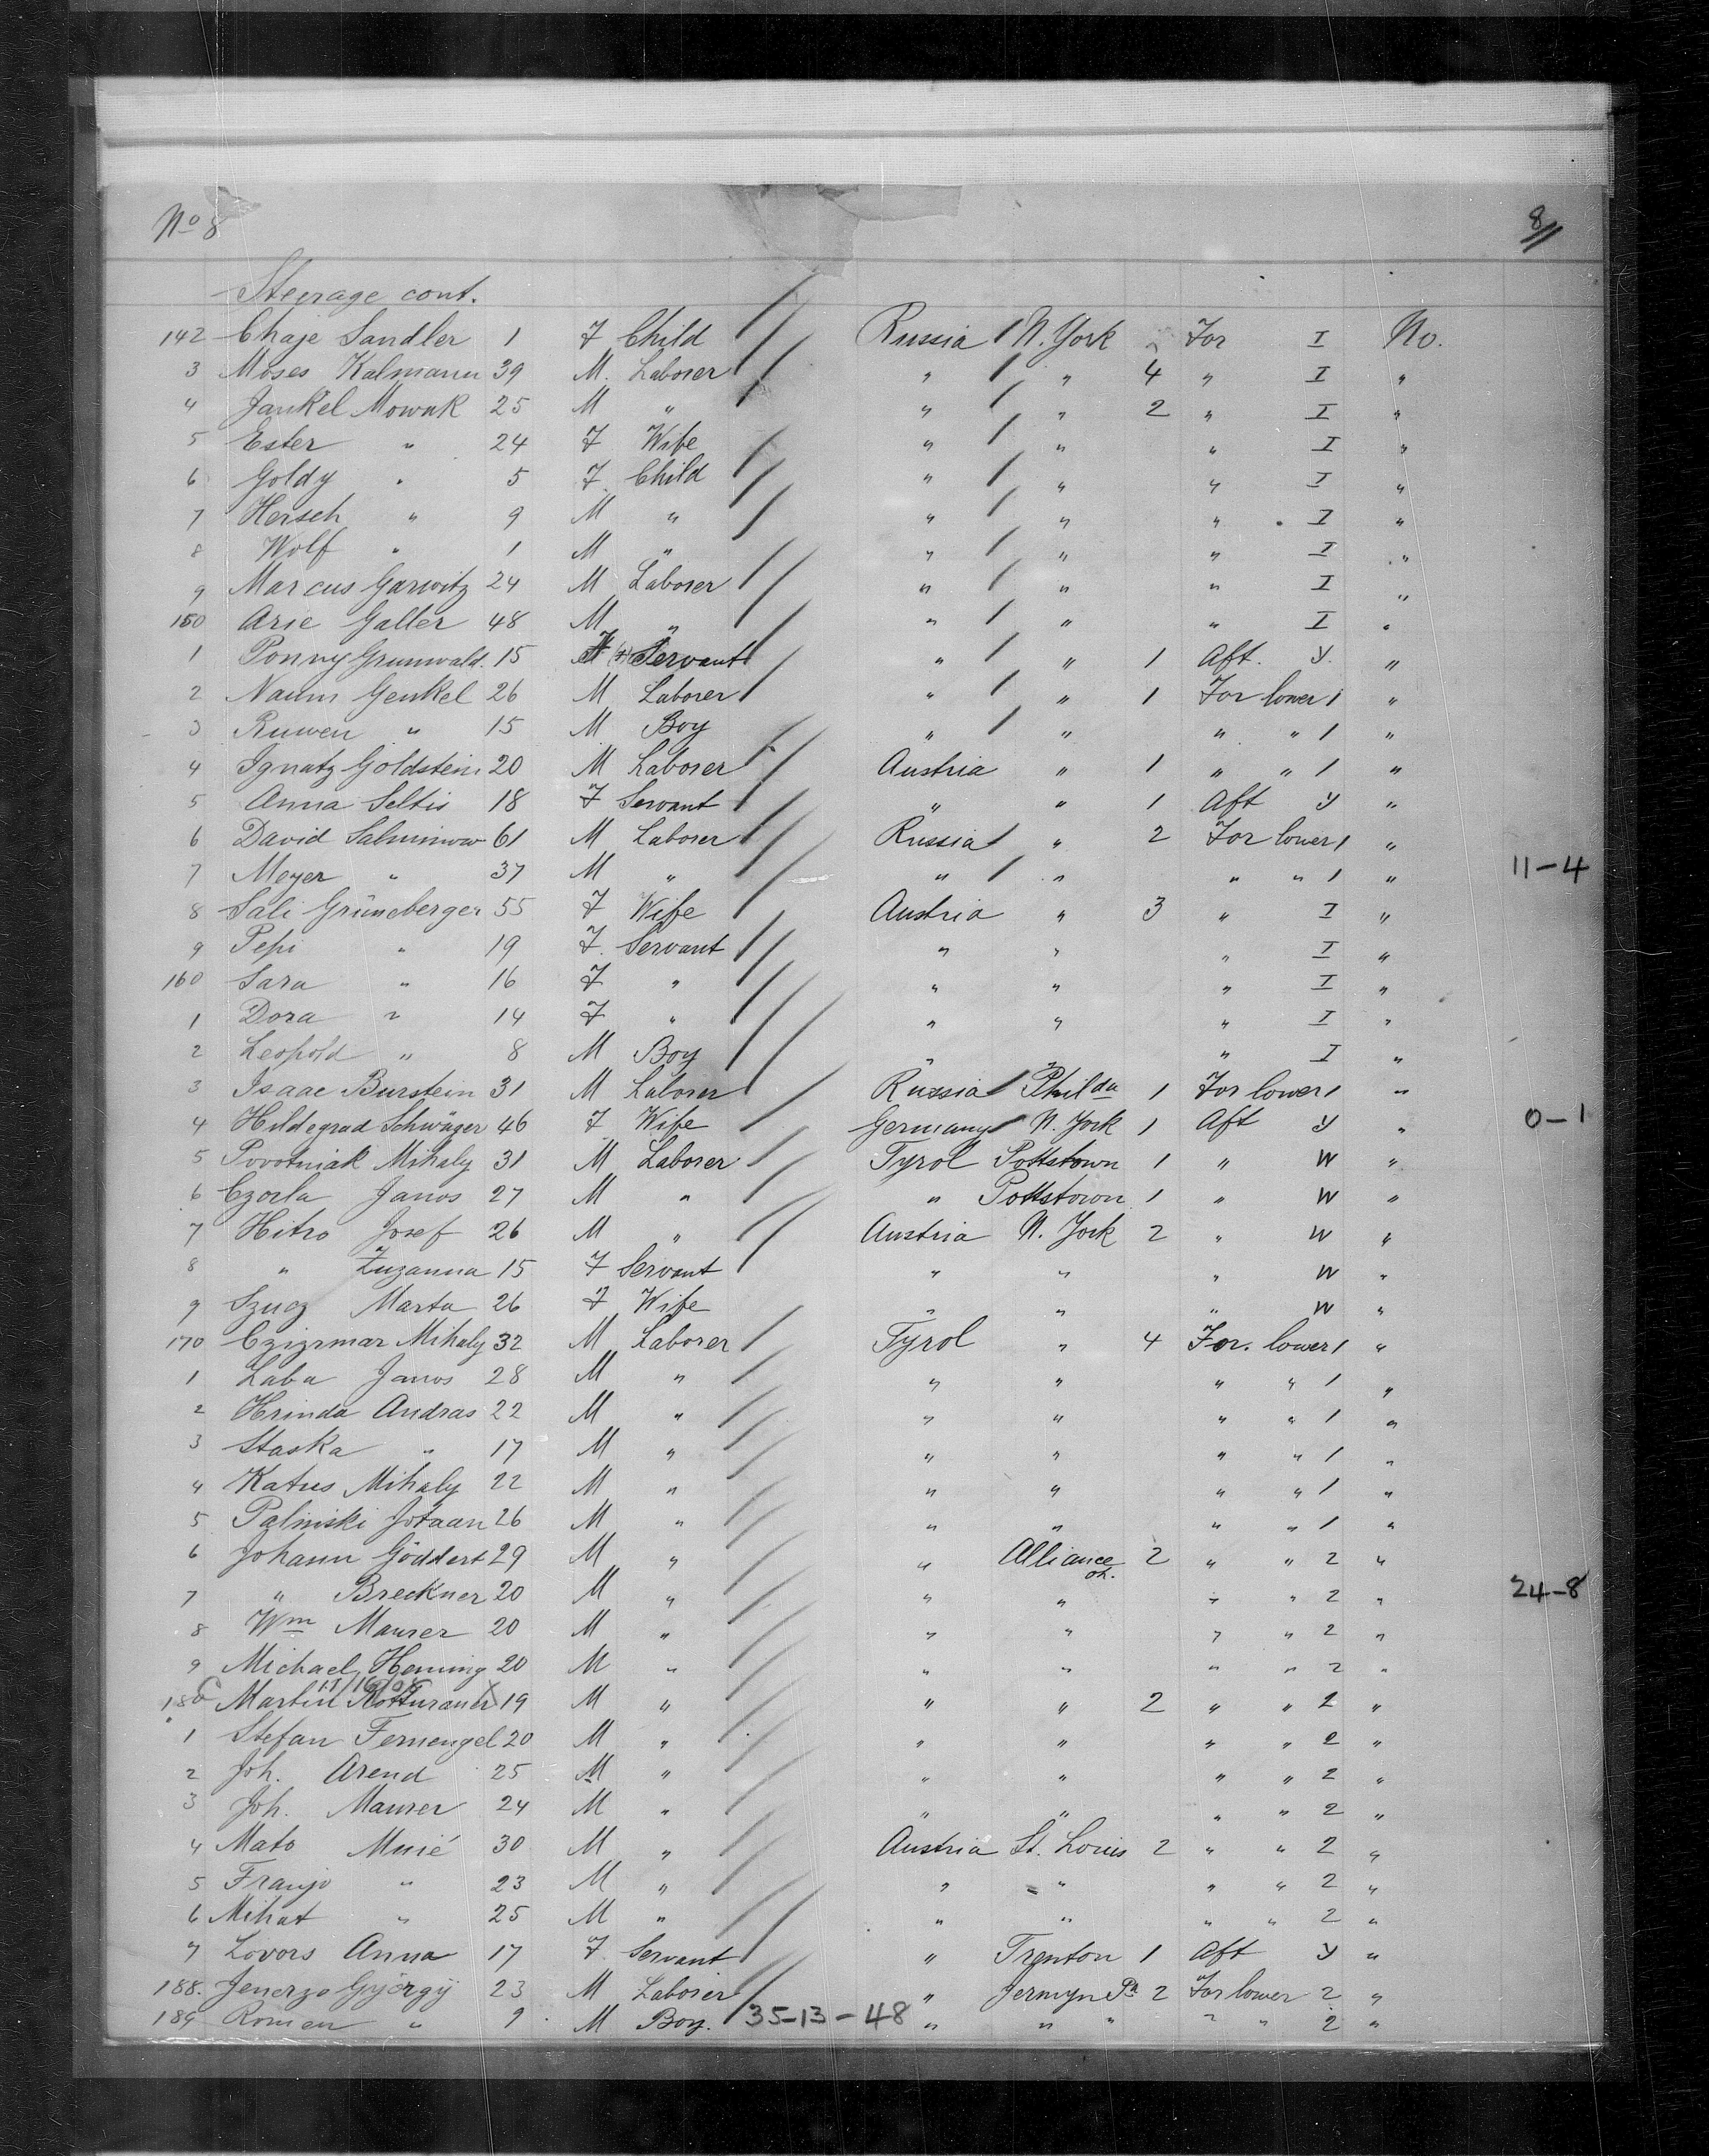 No 8 8
Steerage cont.
142 Chaje Sandler 1 F Child Russia N. York For I No.
3 Moses Kalmann 39 M. Laborer " " 4 " I "
4 Jankel Mowak 25 M " " " 2 " I "
5 Ester " 24 F Wife " " " I "
6 Goldy " 5 F. Child " " " I "
7 Hersch " 9 M " " " " I "
8 Wolf " 1 M " " " " I "
9 Marcus Garwitz 24 M Laborer " " " I "
150 Arie Galler 48 M " " " " I "
1 Ponny Grunwald. 15 F Servant " " 1 Aft. y. "
2 Naum Genkel 26 M Laborer " " 1 For lower 1 "
3 Ruwen " 15 M Boy " " " " 1 "
4 Ignatz Goldstein 20 M Laborer Austria " 1 " " 1 "
5 Anna Seltis 18 F Servant " " 1 Aft y "
6 David Salminow 61 M Laborer Russia " 2 For lower 1 "
7 Meyer " 37 M " " " " " 1 " 11-4
8 Sali Grüneberger 55 F Wife Austria " 3 " I "
9 Pepi " 19 F. Servant " " " I "
160 Sara " 16 F " " " " I "
1 Dora " 14 F " " " " I "
2 Leopold " 8 M Boy " " " I "
3 Isaac Burstein 31 M Laborer Russia Philda 1 For lower 1 "
4 Hildegrad Schwäger 46 F Wife Germany N. York 1 Aft y " 0-1
5 Povotniak Mihaly 31 M Laborer Tyrol Pottstown 1 " W "
6 Czorla Janos 27 M " " Pottstown 1 " W "
7 Hitro Josef 26 M " Austria N. York 2 " W "
8 " Zuzanna 15 F Servant " " " W "
9 Szucz Marta 26 F Wife " " " W "
170 Czizrmar Mihaly 32 M Laborer Tyrol " 4 For. lower 1 "
1 Laba Janos 28 M " " " " " 1 "
2 Hrinda Andras 22 M " " " " " 1 "
3 Staska " 17 M " " " " " 1 "
4 Katus Mihaly 22 M " " " " " 1 "
5 Palinski 26 M " " " " " 1 "
6 Johann Göddert 29 M " " Alliance oh. 2 " " 2 "
7 " Breckner 20 M " " " " " 2 " 24-8
8 Wm Maurer 20 M " " " " " 2 "
9 Michael Hening 20 M " " " " " 2 "
180 Martin 19 M " " " 2 " " 2 "
1 Stefan Fernengel 20 M " " " " " 2 "
2 Joh. Arend 25 M " " " " " 2 "
3 Joh. Maurer 24 M " " " " " 2 "
4 Mato Musić 30 M " Austria St. Louis 2 " " 2 "
5 Franjo " 23 M " " " " " 2 "
6 Mihat " 25 M " " " " " 2 "
7 Lovors Anna 17 F. Servant " Trenton 1 Aft y "
188. Jenerzo György 23 M Laborer " Jermyn Pa 2 For lower 2 "
189 Roman " 9 M Boy. 35-13-48 " " " " " 2 "